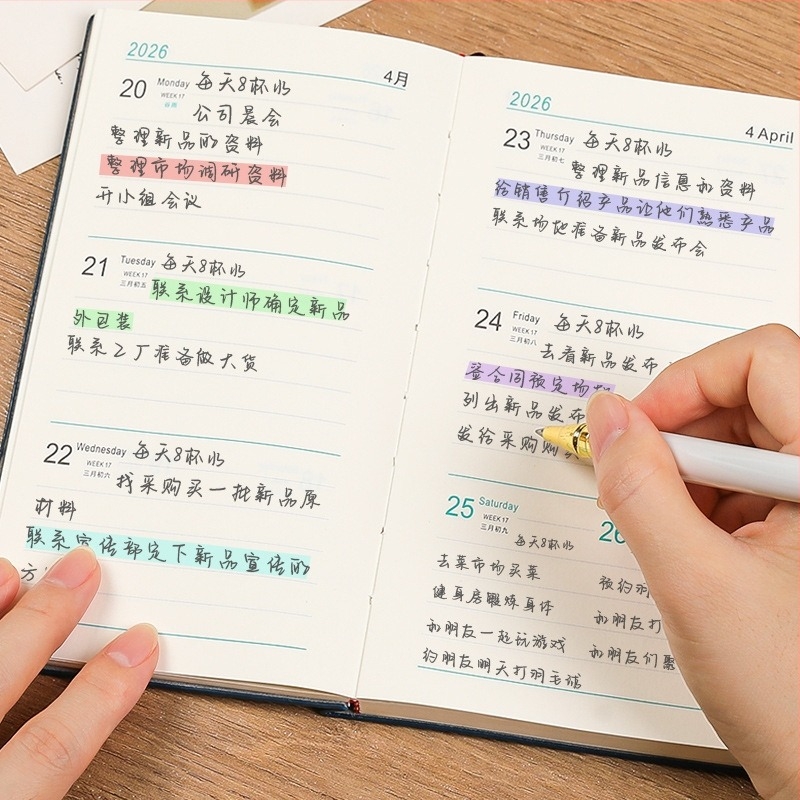 2026
4月
20 Monday 每天8杯水
WEEK17
公司晨会
整理新品的资料
整理市场调研资料
开小组会议
21 Tuesday 每天8杯水
WEEK17
三月初五 联系设计师确定新品
外包装
联系工厂准备做大货
22 Wednesday 每天8杯水
WEEK17
三月初六 找采购买一批新品原
材料
联系宣传部定下新品宣传的
方
2026
4 April
23 Thursday 每天8杯水
WEEK17
三月初七 整理新品信息和资料
给销售介绍产品让他们熟悉产品
联系场地准备新品发布会
24 Friday 每天8杯水
WEEK17
三月初八 去看新品发布
签合同预定场地
列出新品发布
发给采购购
25 Saturday
WEEK17
三月初九
每天8杯水
去菜市场买菜
健身房雕炼身体
和朋友一起玩游戏
约朋友明天打羽毛球
预约羽
和朋友打
和朋友们聚